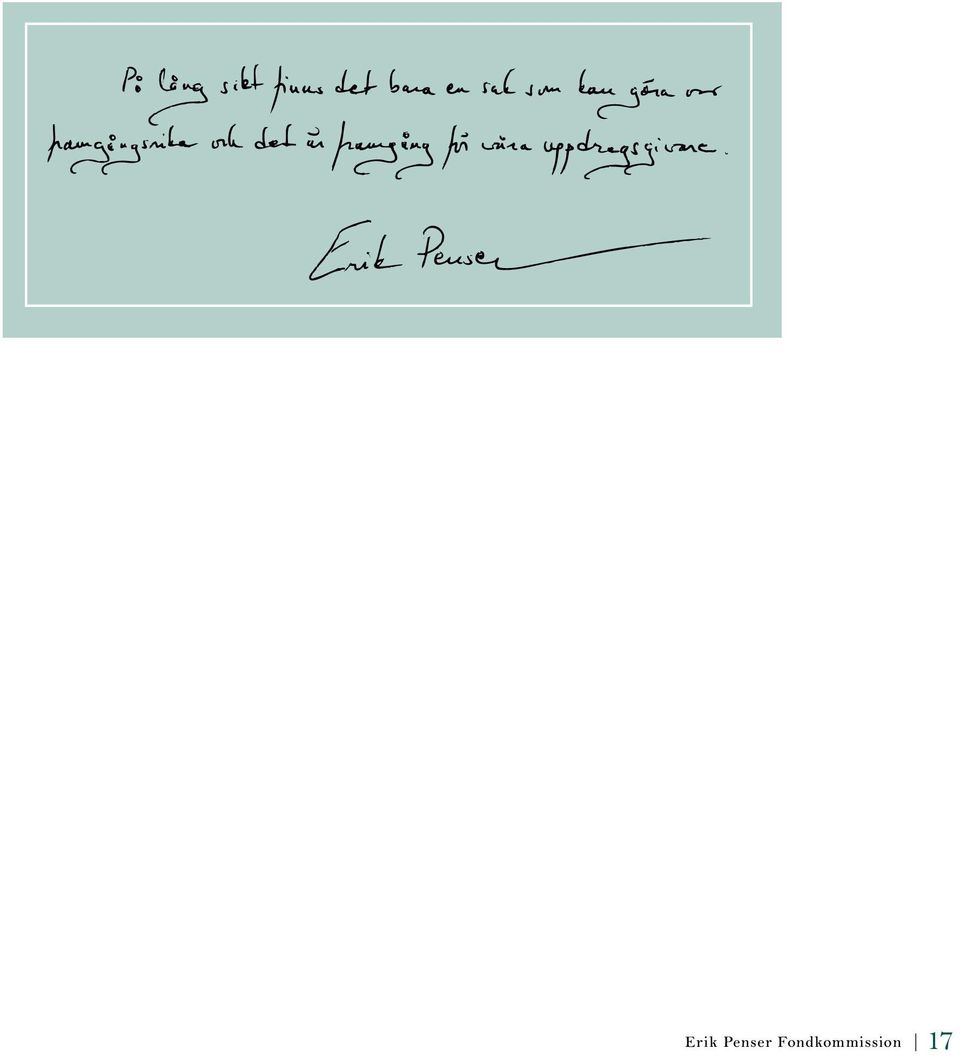 På lång sikt finns det bara en sak som kan göra oss
framgångsrika och det är framgång för våra uppdragsgivare.
Erik Penser
Erik Penser Fondkommission | 17